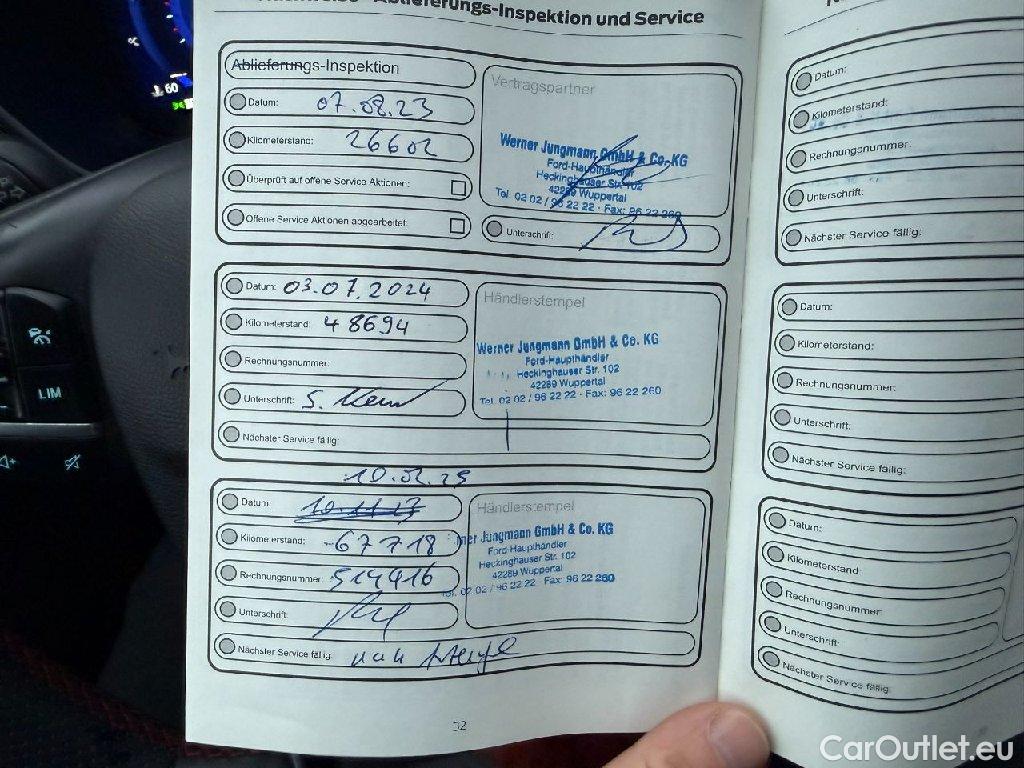 Ablieferungs-Inspektion und Service
Ablieferungs-Inspektion
Datum: 07.08.23
Kilometerstand: 26602
Überprüft auf offene Service Aktionen:
Offene Service Aktionen abgearbeitet:
Vertragspartner
Werner Jungmann GmbH & Co. KG
Ford-Haupthändler
Heckinghauser Str. 102
42289 Wuppertal
Tel. 02 02 / 96 22 22 · Fax: 96 22 260
Unterschrift:
Datum: 03.07.2024
Kilometerstand: 48694
Rechnungsnummer:
Unterschrift:
Nächster Service fällig:
Händlerstempel
Werner Jungmann GmbH & Co. KG
Ford-Haupthändler
Heckinghauser Str. 102
42289 Wuppertal
Tel. 02 02 / 96 22 22 · Fax: 96 22 260
Datum:
Kilometerstand: 67718
Rechnungsnummer: 514416
Unterschrift:
Nächster Service fällig:
Händlerstempel
Jungmann GmbH & Co. KG
Ford-Haupthändler
Heckinghauser Str. 102
42289 Wuppertal
02 02 / 96 22 22 · Fax: 96 22 260
32
Datum:
Kilometerstand:
Rechnungsnummer:
Unterschrift:
Nächster Service fällig:
Datum:
Kilometerstand:
Rechnungsnummer:
Unterschrift:
Nächster Service fällig:
Datum:
Kilometerstand:
Rechnungsnummer:
Unterschrift:
Nächster Service fällig:
60
LIM
CarOutlet.eu